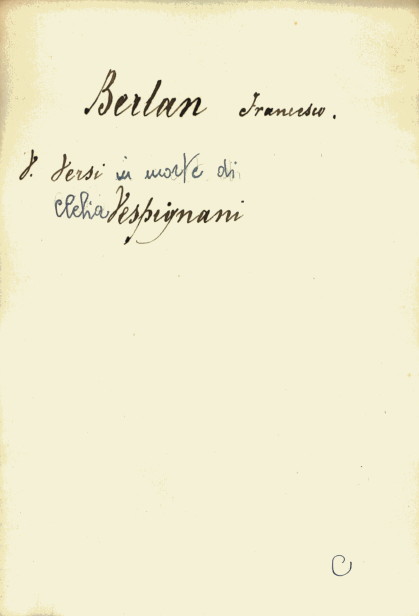 Berlan Francesco.
V. Versi in morte di
Clelia Vespignani
C